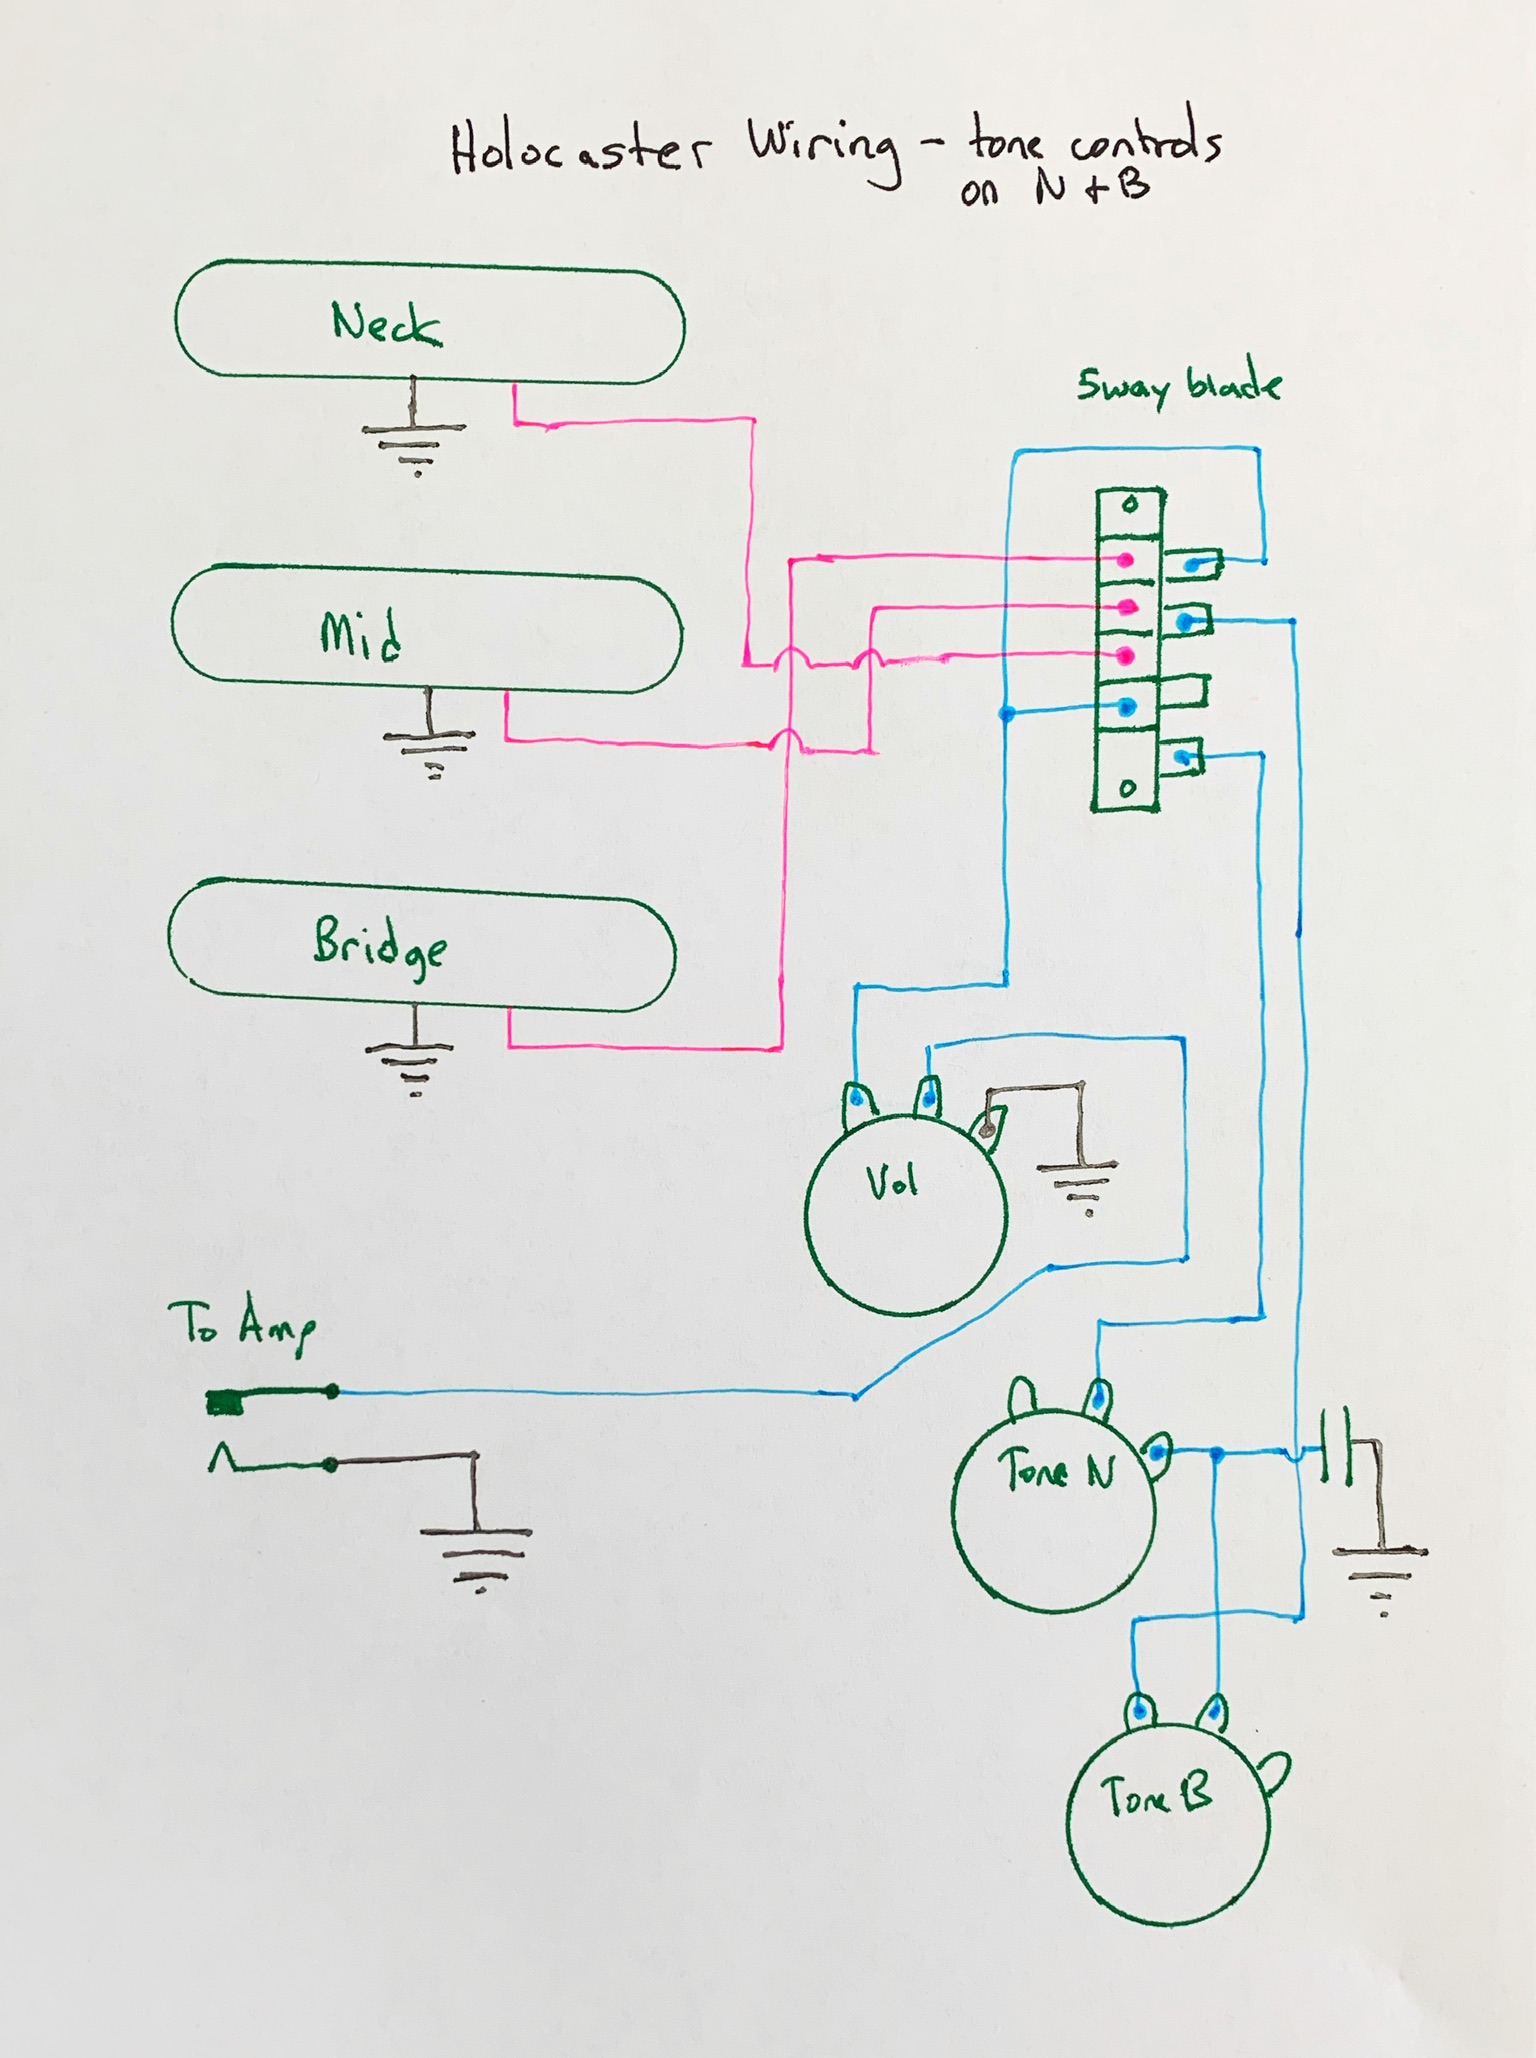 Holocaster Wiring - tone controls
on N + B
Neck
5way blade
Mid
Bridge
Vol
To Amp
Tone N
Tone B